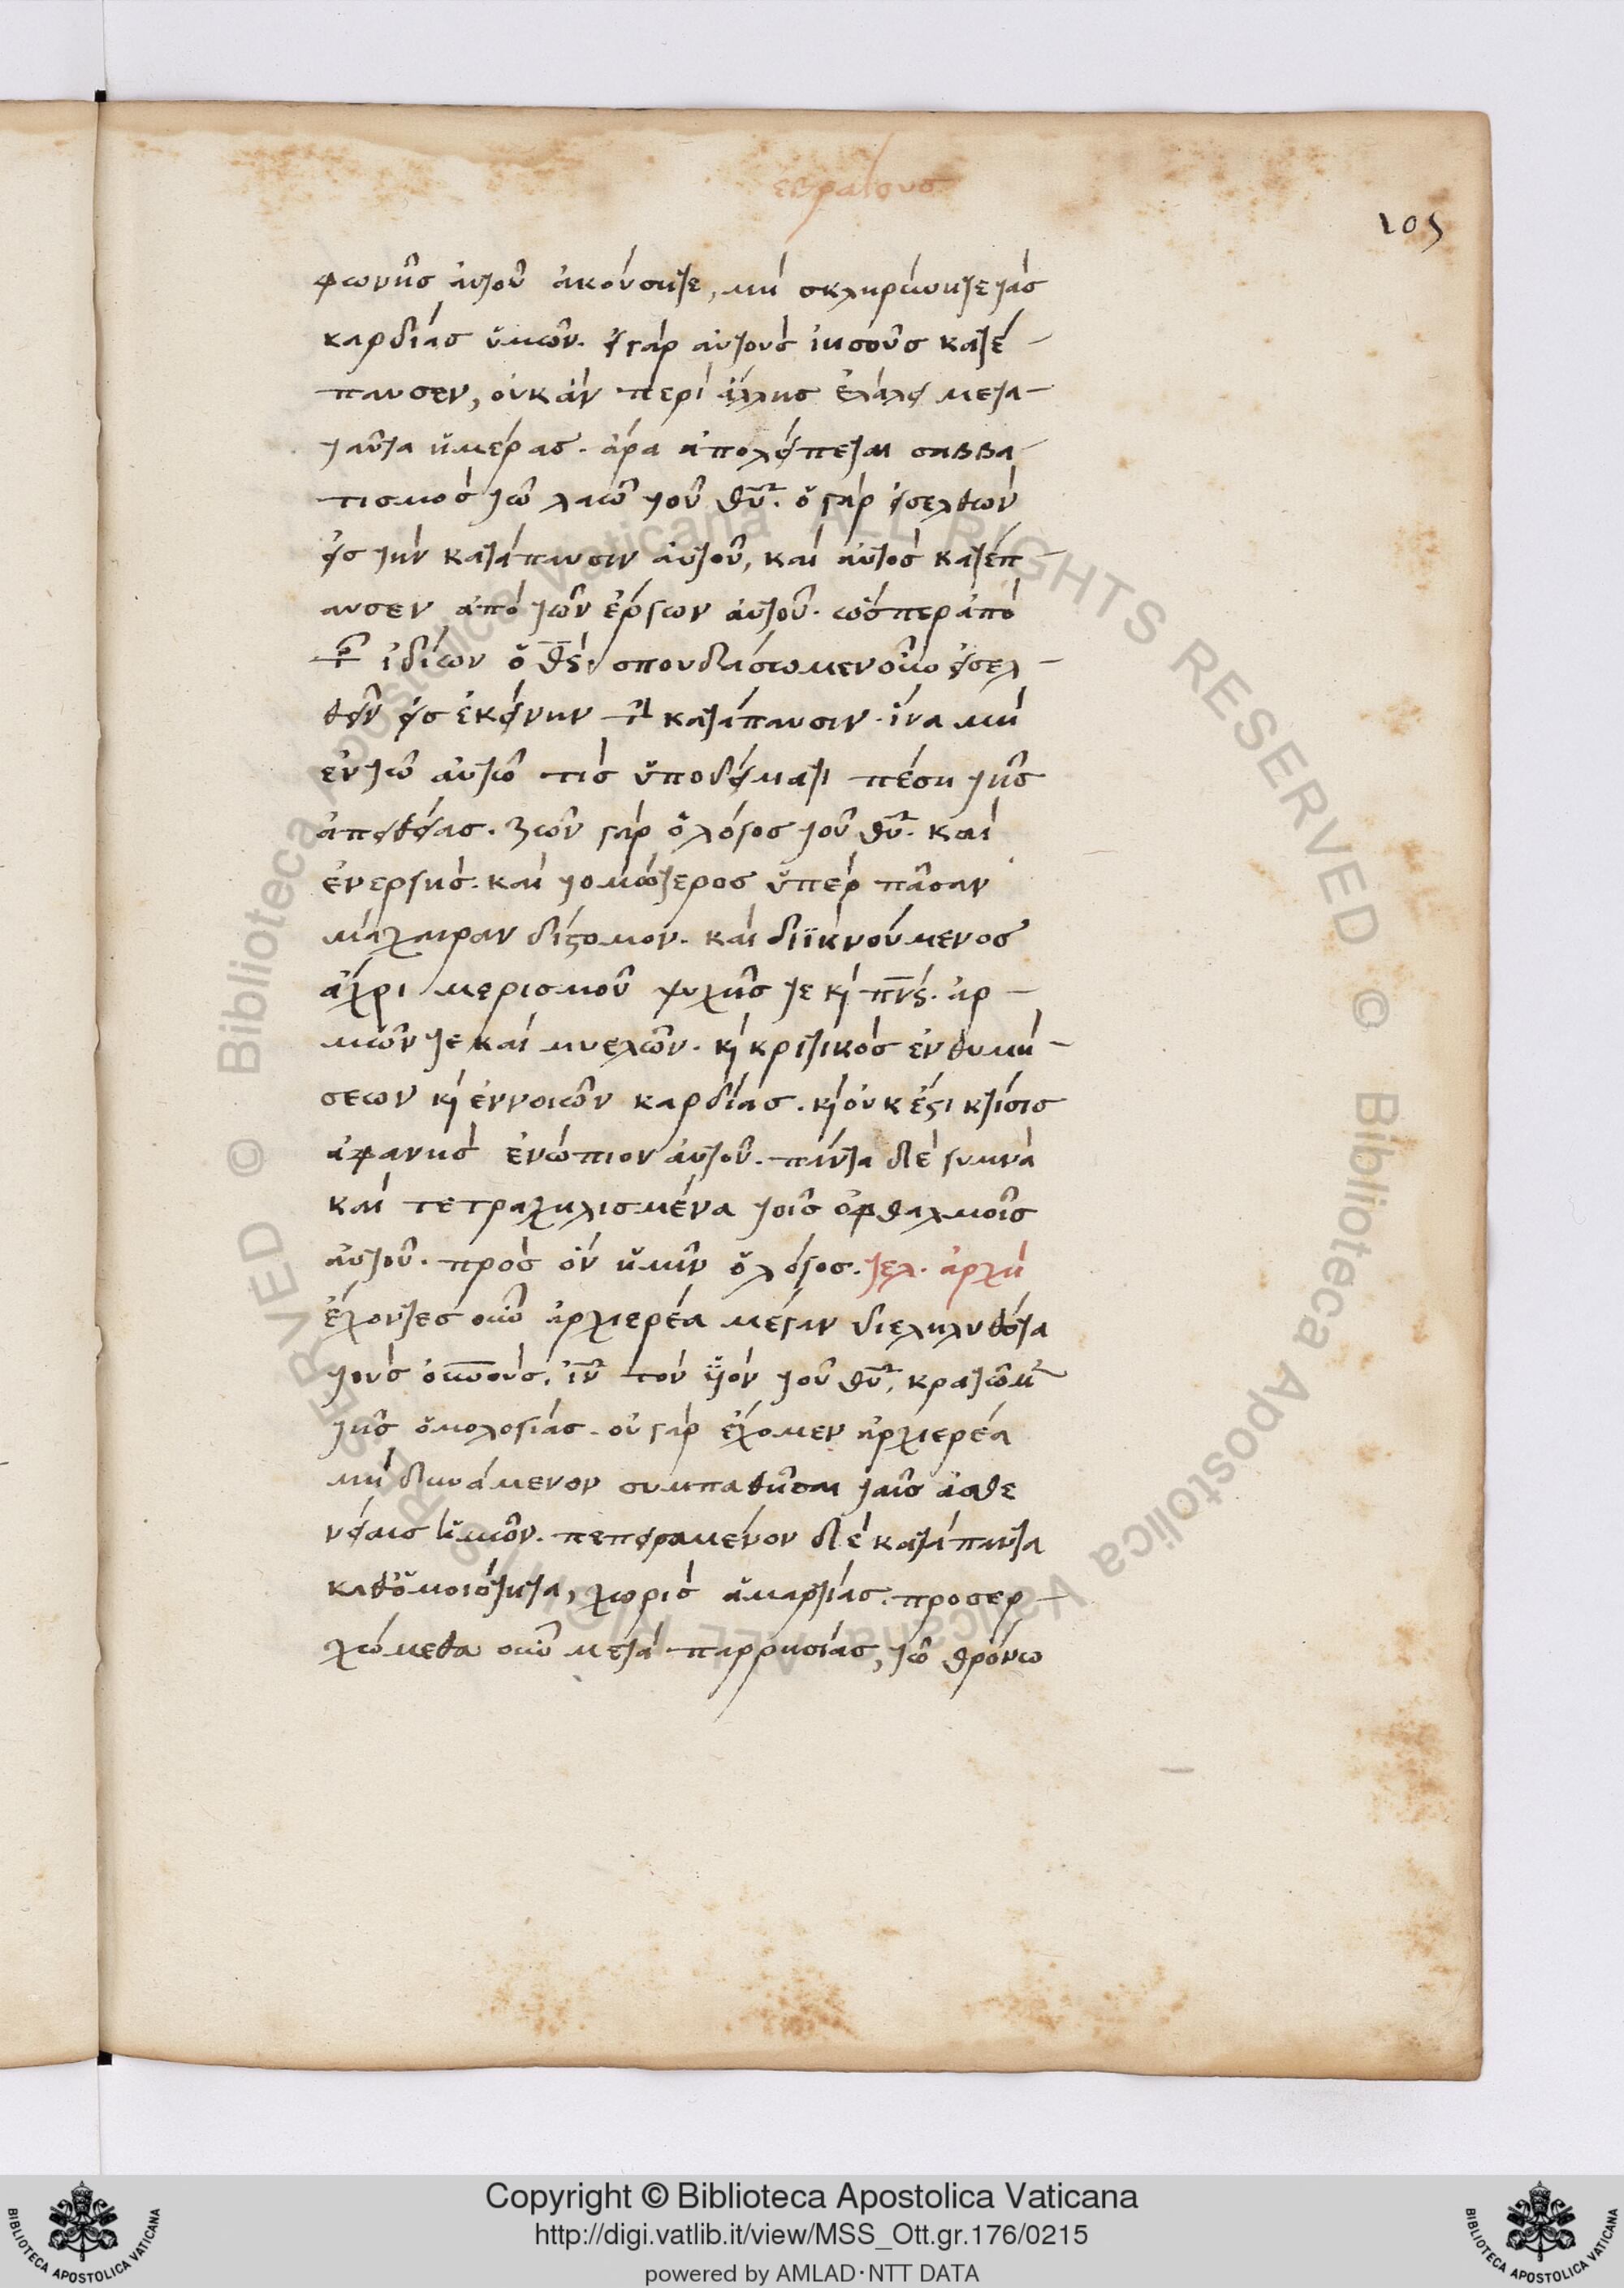 εβραίουσ
105
φωνῆσ ἀυτοῦ ἀκούσητε, μὴ σκληρύνητε τὰσ
καρδίασ ὑμῶν. εἰ γὰρ αὐτοὺσ ἰησοῦσ κατέ-
παυσεν, οὐκ ἂν περὶ ἄλλησ ἐλάλει μετα-
ταῦτα ἡμέρασ. ἄρα ἀπολείπεται σαββα-
τισμὸσ τῶ λαῶ τοῦ θῦ. ὁ γὰρ εἰσελθὼν
εἰσ τὴν κατάπαυσιν ἀυτοῦ, καὶ αὐτὸσ κατέπ-
αυσεν ἀπὸ τῶν ἔργων ἀυτοῦ. ὥσπερ ἀπὸ
τῶν ἰδίων ὁ θς. σπουδάσωμεν οὖν εἰσελ-
θεῖν εἰσ ἐκείνην τὴν κατάπαυσιν. ἵνα μὴ
ἐν τῶ ἀυτῶ τὶσ ὑποδείγματι πέση τῆσ
ἀπειθείασ. ζῶν γὰρ ὁ λόγοσ τοῦ θῦ. καὶ
ἐνεργὴσ. καὶ τομώτεροσ ὑπὲρ πᾶσαν
μάχαιραν δίστομον. καὶ διϊκνούμενοσ
ἄχρι μερισμοῦ ψυχῆσ τε κὶ πνς. ἁρ-
μῶν τε καὶ μυελῶν. κὶ κριτικὸσ ἐνθυμή-
σεων κὶ ἐννοιῶν καρδίασ. κὶ οὐκ ἔστι κτίσισ
ἀφανὴσ ἐνώπιον ἀυτοῦ. πάντα δὲ γυμνὰ
καὶ τετραχηλισμένα τοῖσ ὀφθαλμοῖσ
ἀυτοῦ. πρὸσ ὃν ἡμῖν ὁ λόγοσ. τελ. ἀρχὴ
ἔχοντεσ οὖν ἀρχιερέα μέγαν διεληλυθότα
τοὺσ οὐνοὺσ. ἰν τὸν ὑιὸν τοῦ θῦ, κρατῶμ
τῆσ ὁμολογίασ. οὐ γὰρ ἔχομεν ἀρχιερέα
μὴ δυνάμενον συμπαθῆσαι ταῖσ ἀσθε
νείαισ ἡμῶν. πεπειραμένον δὲ κατὰ πάντα
καθ᾽ ὁμοιότητα, χωρὶσ ἁμαρτίασ. προσερ-
χώμεθα οὖν μετὰ παρρησίασ, τῶ θρόνω
Copyright © Biblioteca Apostolica Vaticana
http://digi.vatlib.it/view/MSS_Ott.gr.176/0215
powered by AMLAD·NTT DATA
BIBLIOTECA APOSTOLICA VATICANA
BIBLIOTECA APOSTOLICA VATICANA
© Biblioteca Apostolica Vaticana ALL RIGHTS RESERVED © Biblioteca Apostolica Vaticana ALL RIGHTS RESERVED